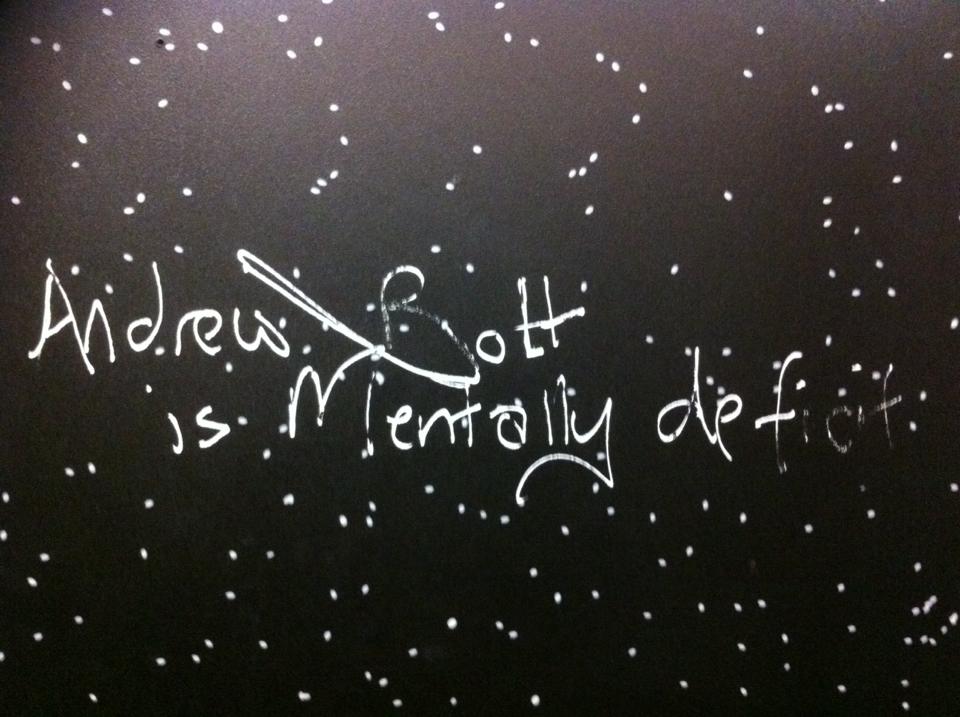 Andrew Bott
is Mentally deficit